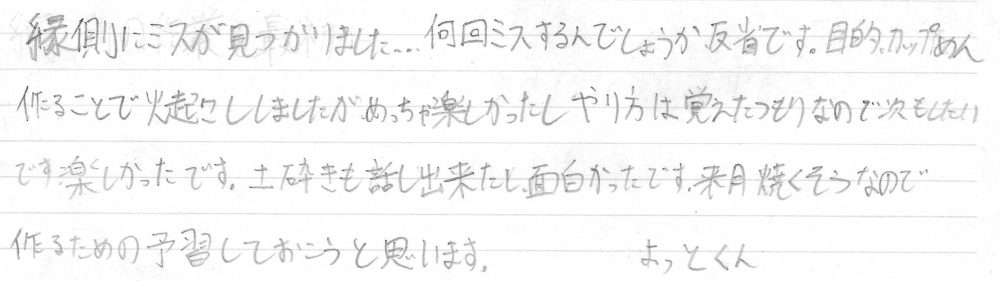 縁側にミスが見つかりました…. 何回ミスするんでしょうか反省です。目的、カップめん
作ることで火起こししましたがめっちゃ楽しかったし やり方は覚えたつもりなので次もしたい
です楽しかったです。土砕きも話し出来たし、面白かったです。来月焼くそうなので
作るための予習しておこうと思います。 よっとくん